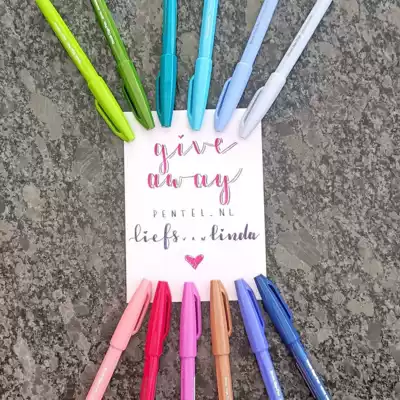 give
away
PENTEL_NL
liefs...linda